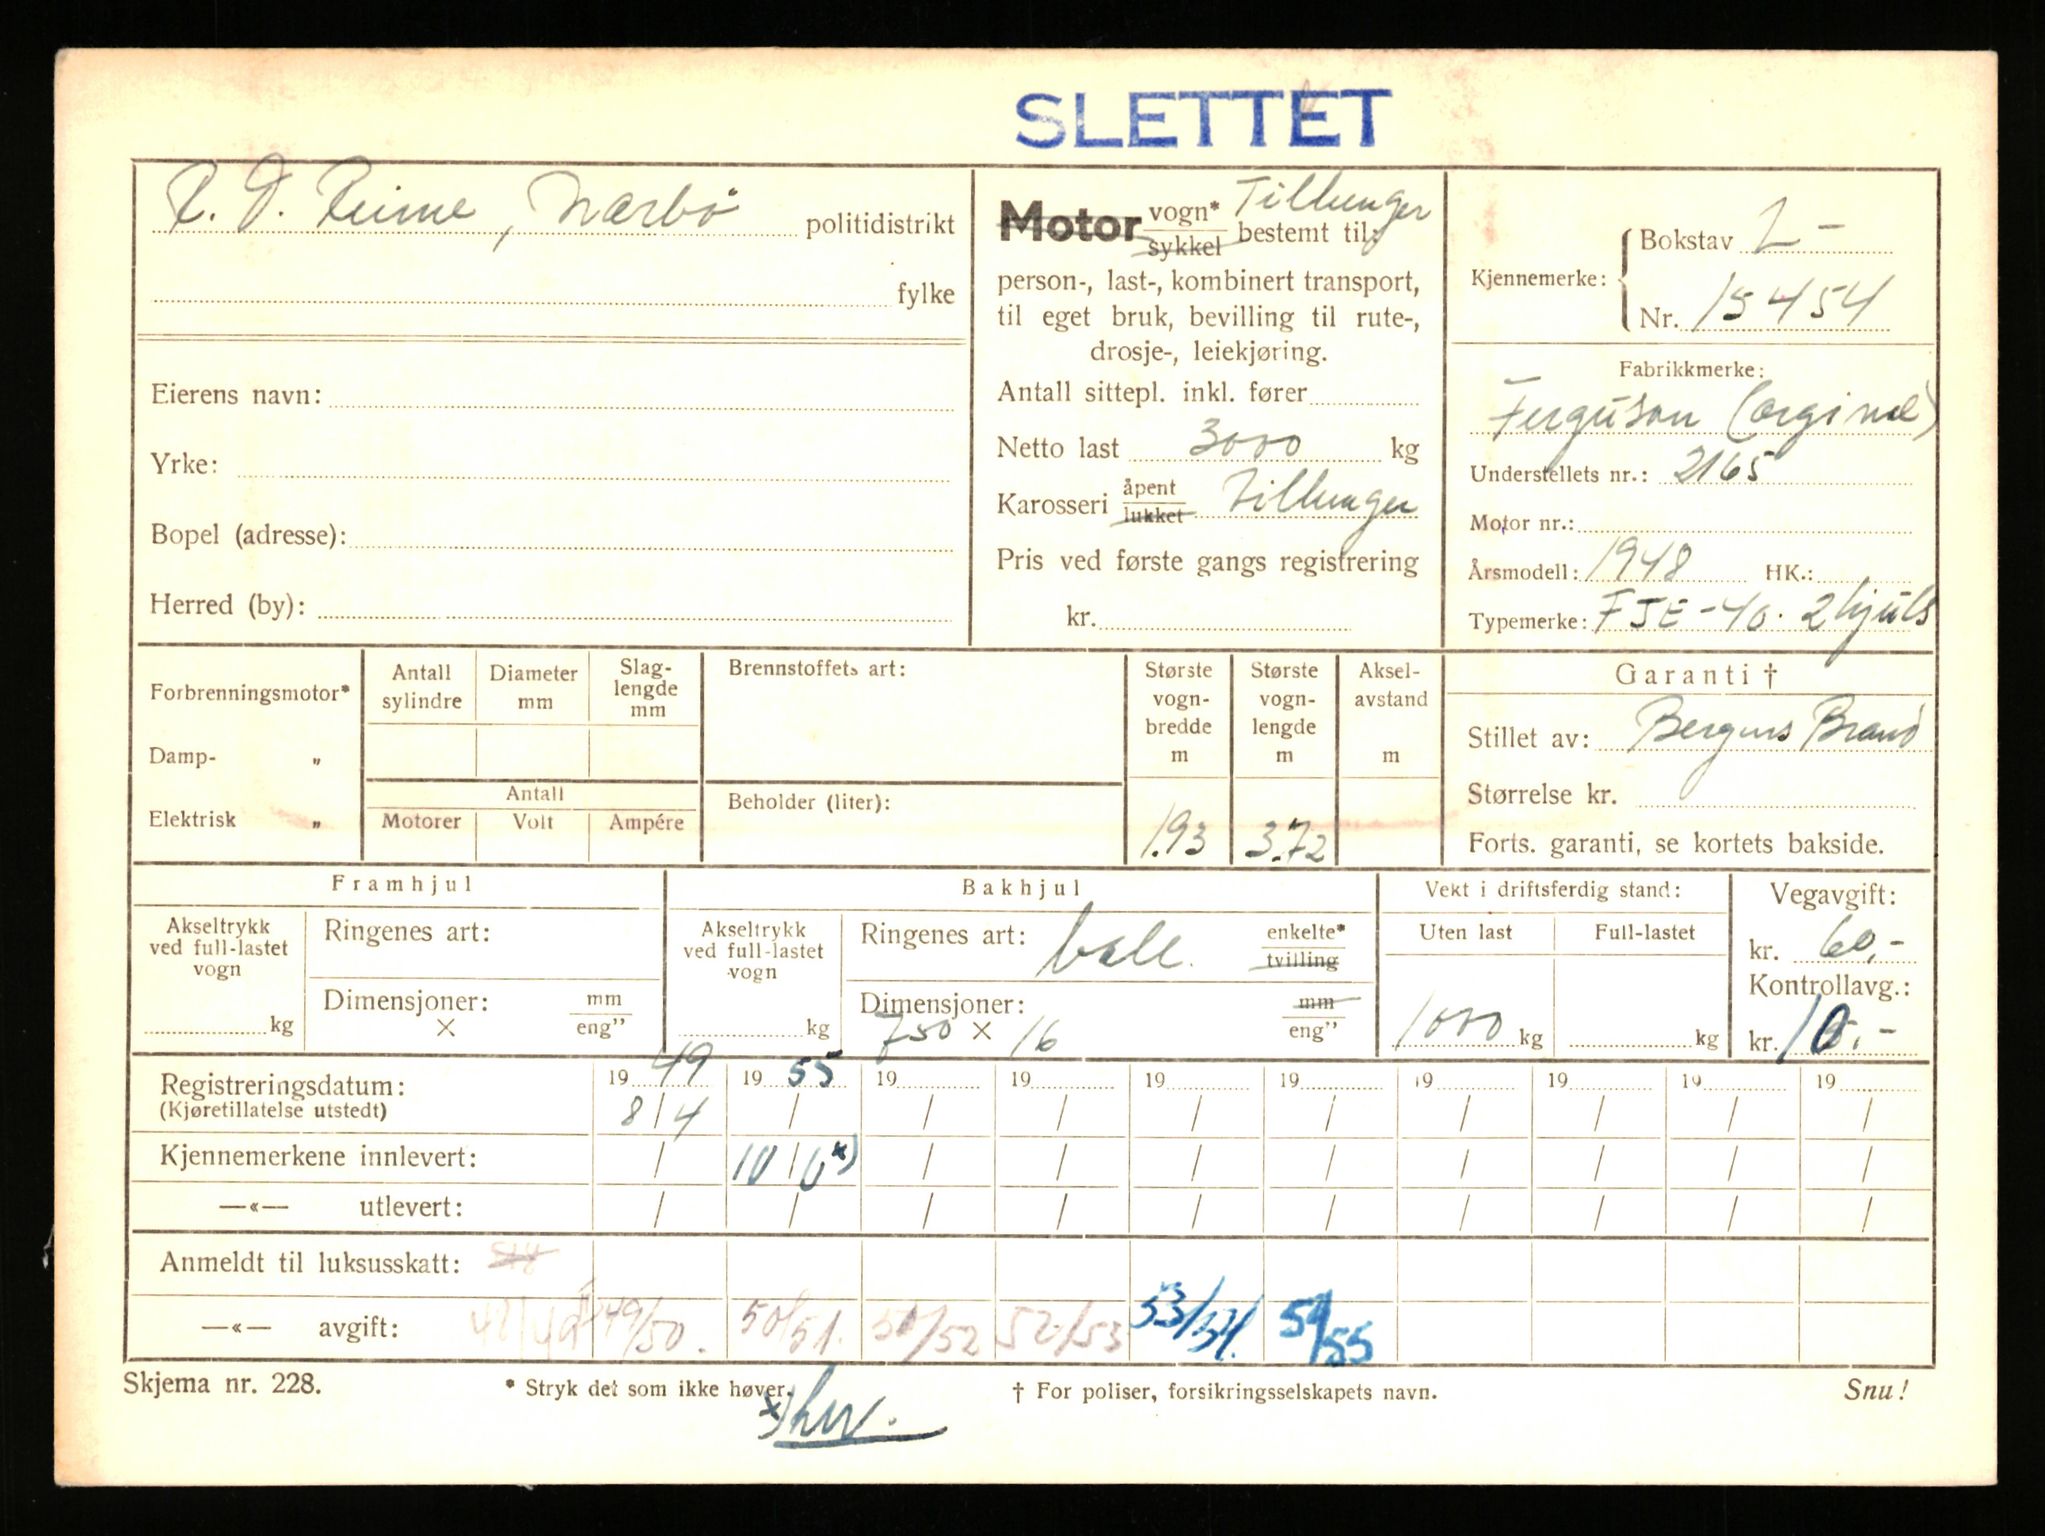 SLETTET
R. D. Reime, Nærbø politidistrikt
fylke
Eierens navn:
Yrke:
Bopel (adresse):
Herred (by):
Motor vogn* sykkel bestemt til: Tilhenger
person-, last-, kombinert transport,
til eget bruk, bevilling til rute-,
drosje-, leiekjøring.
Antall sittepl. inkl. fører
Netto last 3000 kg
Karosseri åpent lukket Tilhenger
Pris ved første gangs registrering
kr.
Kjennemerke: Bokstav L-
Nr. 15454
Fabrikkmerke:
Ferguson (orginal)
Understellets nr.: 2165
Motor nr.:
Årsmodell: 1948 HK.:
Typemerke: FJE-40. 2hjuls
Forbrenningsmotor*
Damp- „
Elektrisk „
Antall sylindre
Diameter mm
Slag-lengde mm
Antall
Motorer Volt Ampére
Brennstoffets art:
Beholder (liter):
Største vogn-bredde m
1.93
Største vogn-lengde m
3.72
Aksel-avstand m
Garanti †
Stillet av: Bergens Brand
Størrelse kr.
Forts. garanti, se kortets bakside.
Framhjul
Akseltrykk ved full-lastet vogn
kg
Ringenes art:
Dimensjoner: mm
× eng"
Bakhjul
Akseltrykk ved full-lastet vogn
kg
Ringenes art: enkelte* tvilling
Dimensjoner: mm
750 × 16 eng"
Vekt i driftsferdig stand:
Uten last Full-lastet
1000 kg kg
Vegavgift:
kr. 60.-
Kontrollavg.:
kr. 10.-
Registreringsdatum: 19 49 19 55 19 19 19 19 19 19 19 19
(Kjøretillatelse utstedt) 8/4 / / / / / / / / /
Kjennemerkene innlevert: / 10/6 x) / / / / / / / /
—«— utlevert: / / / / / / / / / /
Anmeldt til luksusskatt:
—«— avgift: 48/49 49/50. 50/51. 51/52 52/53 53/54. 54/55
Skjema nr. 228. * Stryk det som ikke høver. † For poliser, forsikringsselskapets navn. Snu!